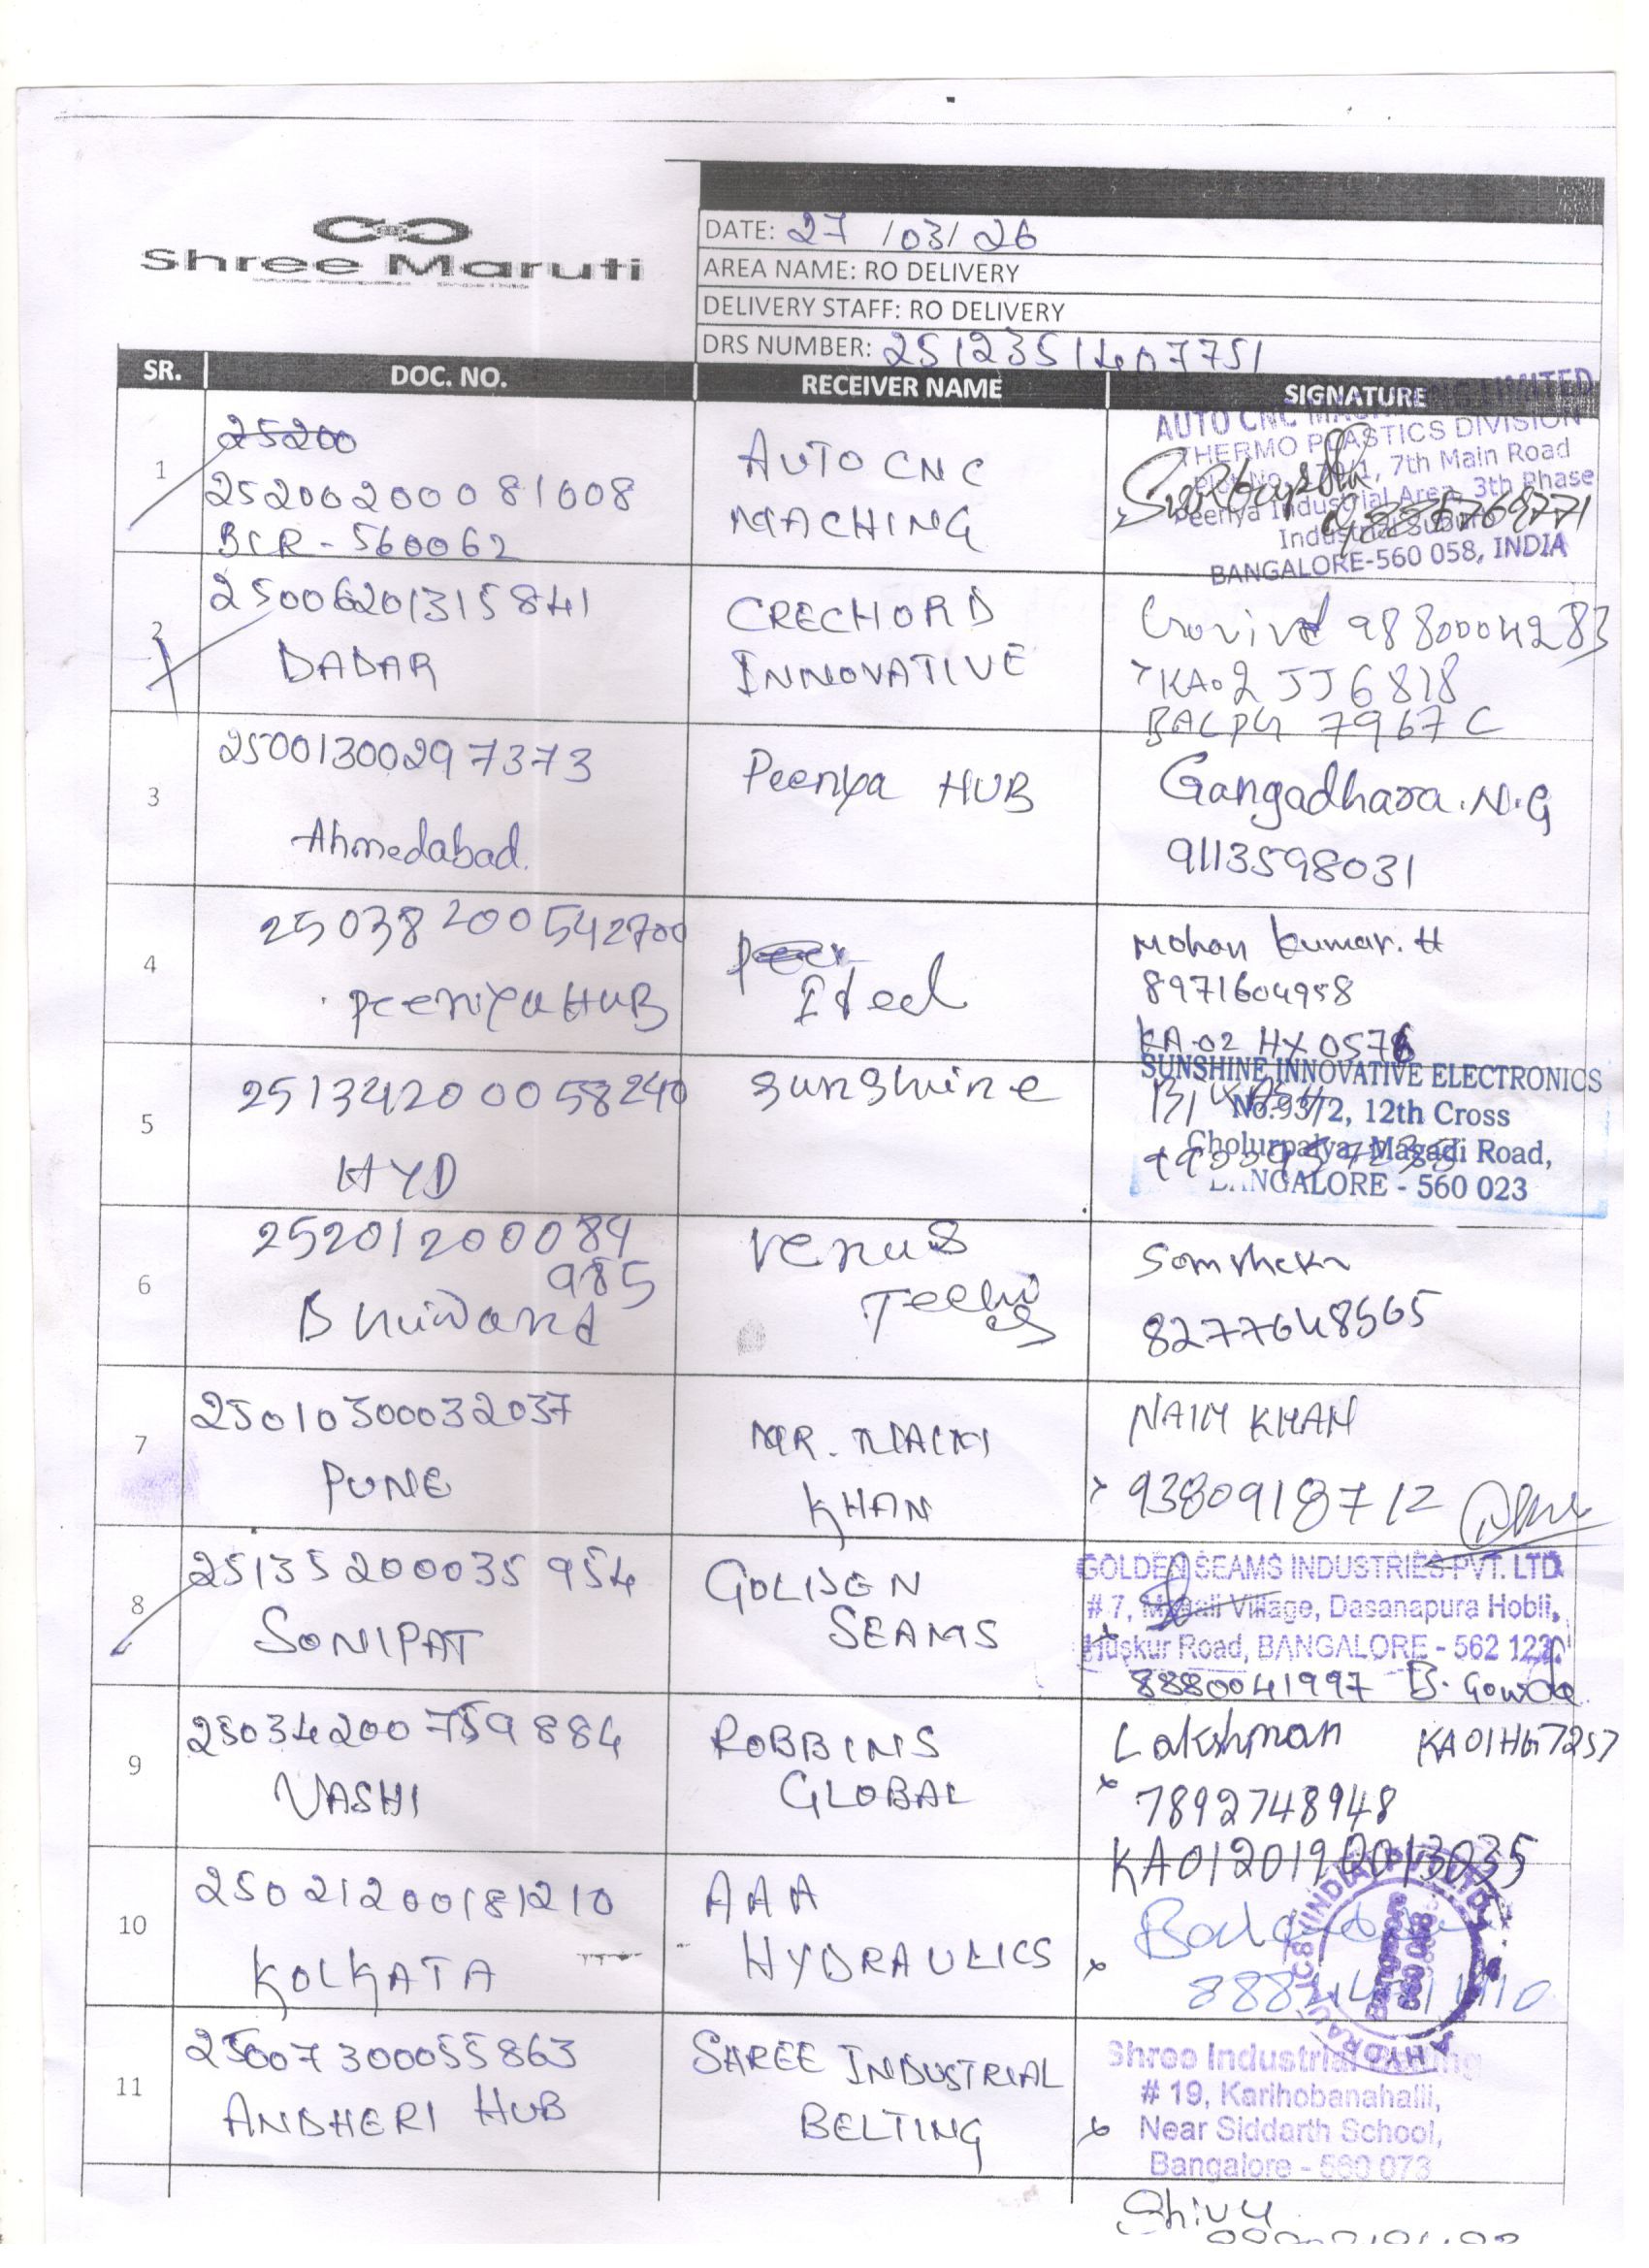 Shree Maruti
DATE: 27/03/26
AREA NAME: RO DELIVERY
DELIVERY STAFF: RO DELIVERY
DRS NUMBER: 2512351407751
SR. DOC. NO. RECEIVER NAME SIGNATURE
1
25200
252002000081008
BCR - 560062
AUTO CNC
MACHING
AUTO CNC MACHINING LIMITED
THERMO PLASTICS DIVISION
7th Main Road
Peenya Industrial Area, 3th Phase
Industrial Suburb
BANGALORE-560 058, INDIA
2
25006201315841
DADAR
CRECHORD
INNOVATIVE
9880004283
KA02 JJ6818
BALPG 7967C
3
250013002997373
Ahmedabad.
Peenya HUB
Gangadhara.N.G
9113598031
4
25038200542700
peeniya HUB
Ideal
Mohan kumar. H
8971604958
KA-02 HX 0576
5
25134200058240
HYD
sunshine
SUNSHINE INNOVATIVE ELECTRONICS
No.93/2, 12th Cross
Cholurpalya, Magadi Road,
BANGALORE - 560 023
6
25201200084
985
Bhiwand
venus
Techi
Somshekr
8277648565
7
25010300032037
PUNE
MR. NAIM
KHAN
NAIM KHAN
9380918712
8
25135200035954
SONIPAT
GOLDEN
SEAMS
GOLDEN SEAMS INDUSTRIES PVT. LTD.
# 7, Village, Dasanapura Hobli,
Huskur Road, BANGALORE - 562 123.
8880041997 B. Gowda
9
25034200759884
VASHI
ROBBINS
GLOBAL
Lakshman KA01HG7257
7892748948
KA0120190013035
10
25021200181210
KOLKATA
AAA
HYDRAULICS
HYDRAULICS (INDIA) PVT LTD
Bangalore
560 058
11
25007300055863
ANDHERI HUB
SHREE INDUSTRIAL
BELTING
Shree Industrial Belting
# 19, Karihobanahalli,
Near Siddarth School,
Bangalore - 560 073
Shivu